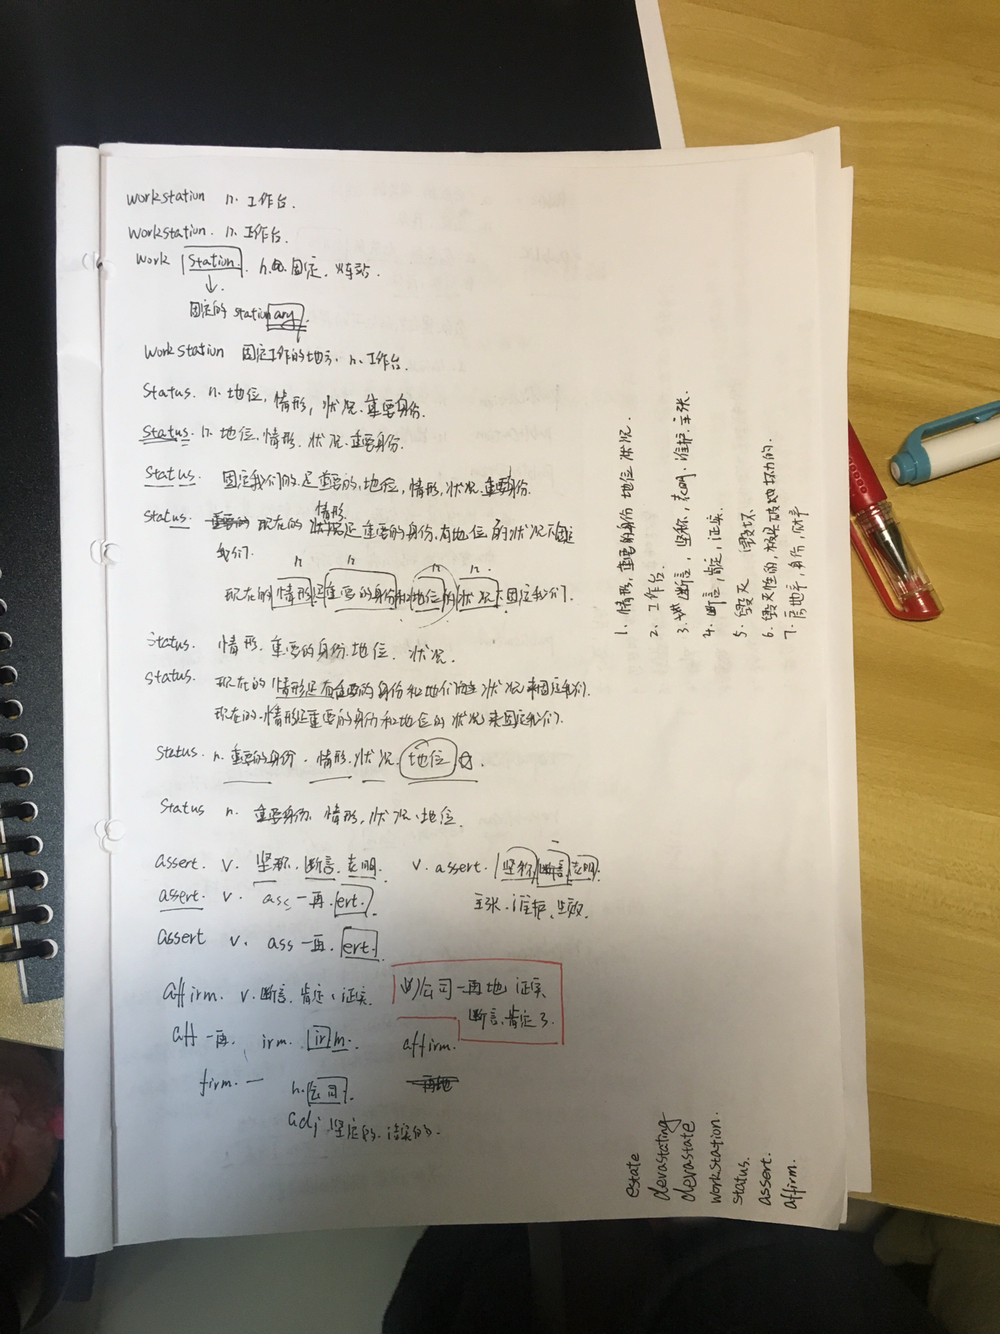 workstation n. 工作台.
workstation. n. 工作台.
work station. n. 固定. 火车站.
固定的 stationary.
workstation 固定工作的地方. n. 工作台.
status. n. 地位, 情形, 状况. 重要身份.
status. n. 地位. 情形. 状况. 重要身份.
status. 固定我们的. 是重要的, 地位, 情形, 状况. 重要身份.
情形
status. 现在的 还是重要的身份, 有地位的状况
我们.
n n n n
现在的情形还重要的身份和地位的状况 固定我们.
status. 情形. 重要的身份. 地位. 状况.
status. 现在的情形还有重要的身份和 状况来固定我们.
现在的情形还重要的身份和地位的状况来固定我们.
status. n. 重要的身份. 情形. 状况. 地位.
status n. 重要身份. 情形, 状况、地位.
assert. v. 坚称. 断言. 表明. v. assert. 坚称 断言 表明.
assert. v. ass 一再. ert. 主张. 维护.
assert v. ass 一再. ert.
affirm. v. 断言. 肯定. 证实.
公司一再地 证实
断言. 肯定了.
aff 一再. irm. irm. affirm.
firm. 一 n. 公司.
adj 坚定的. 结实的.
1. 情形, 重要的身份 地位 状况.
2. 工作台.
3. 断言, 坚称, 表明. 维护. 主张.
4. 断言, 肯定, 证实.
5. 毁灭 毁坏.
6. 毁灭性的, 极具破坏力的.
7. 房地产,
estate
devastating
devastate
workstation.
status.
assert.
affirm.